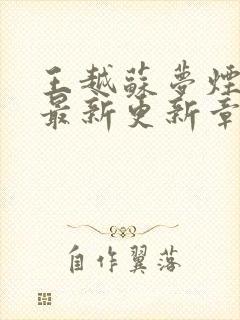 王越蘇夢煙
最新更新章
自作翼落